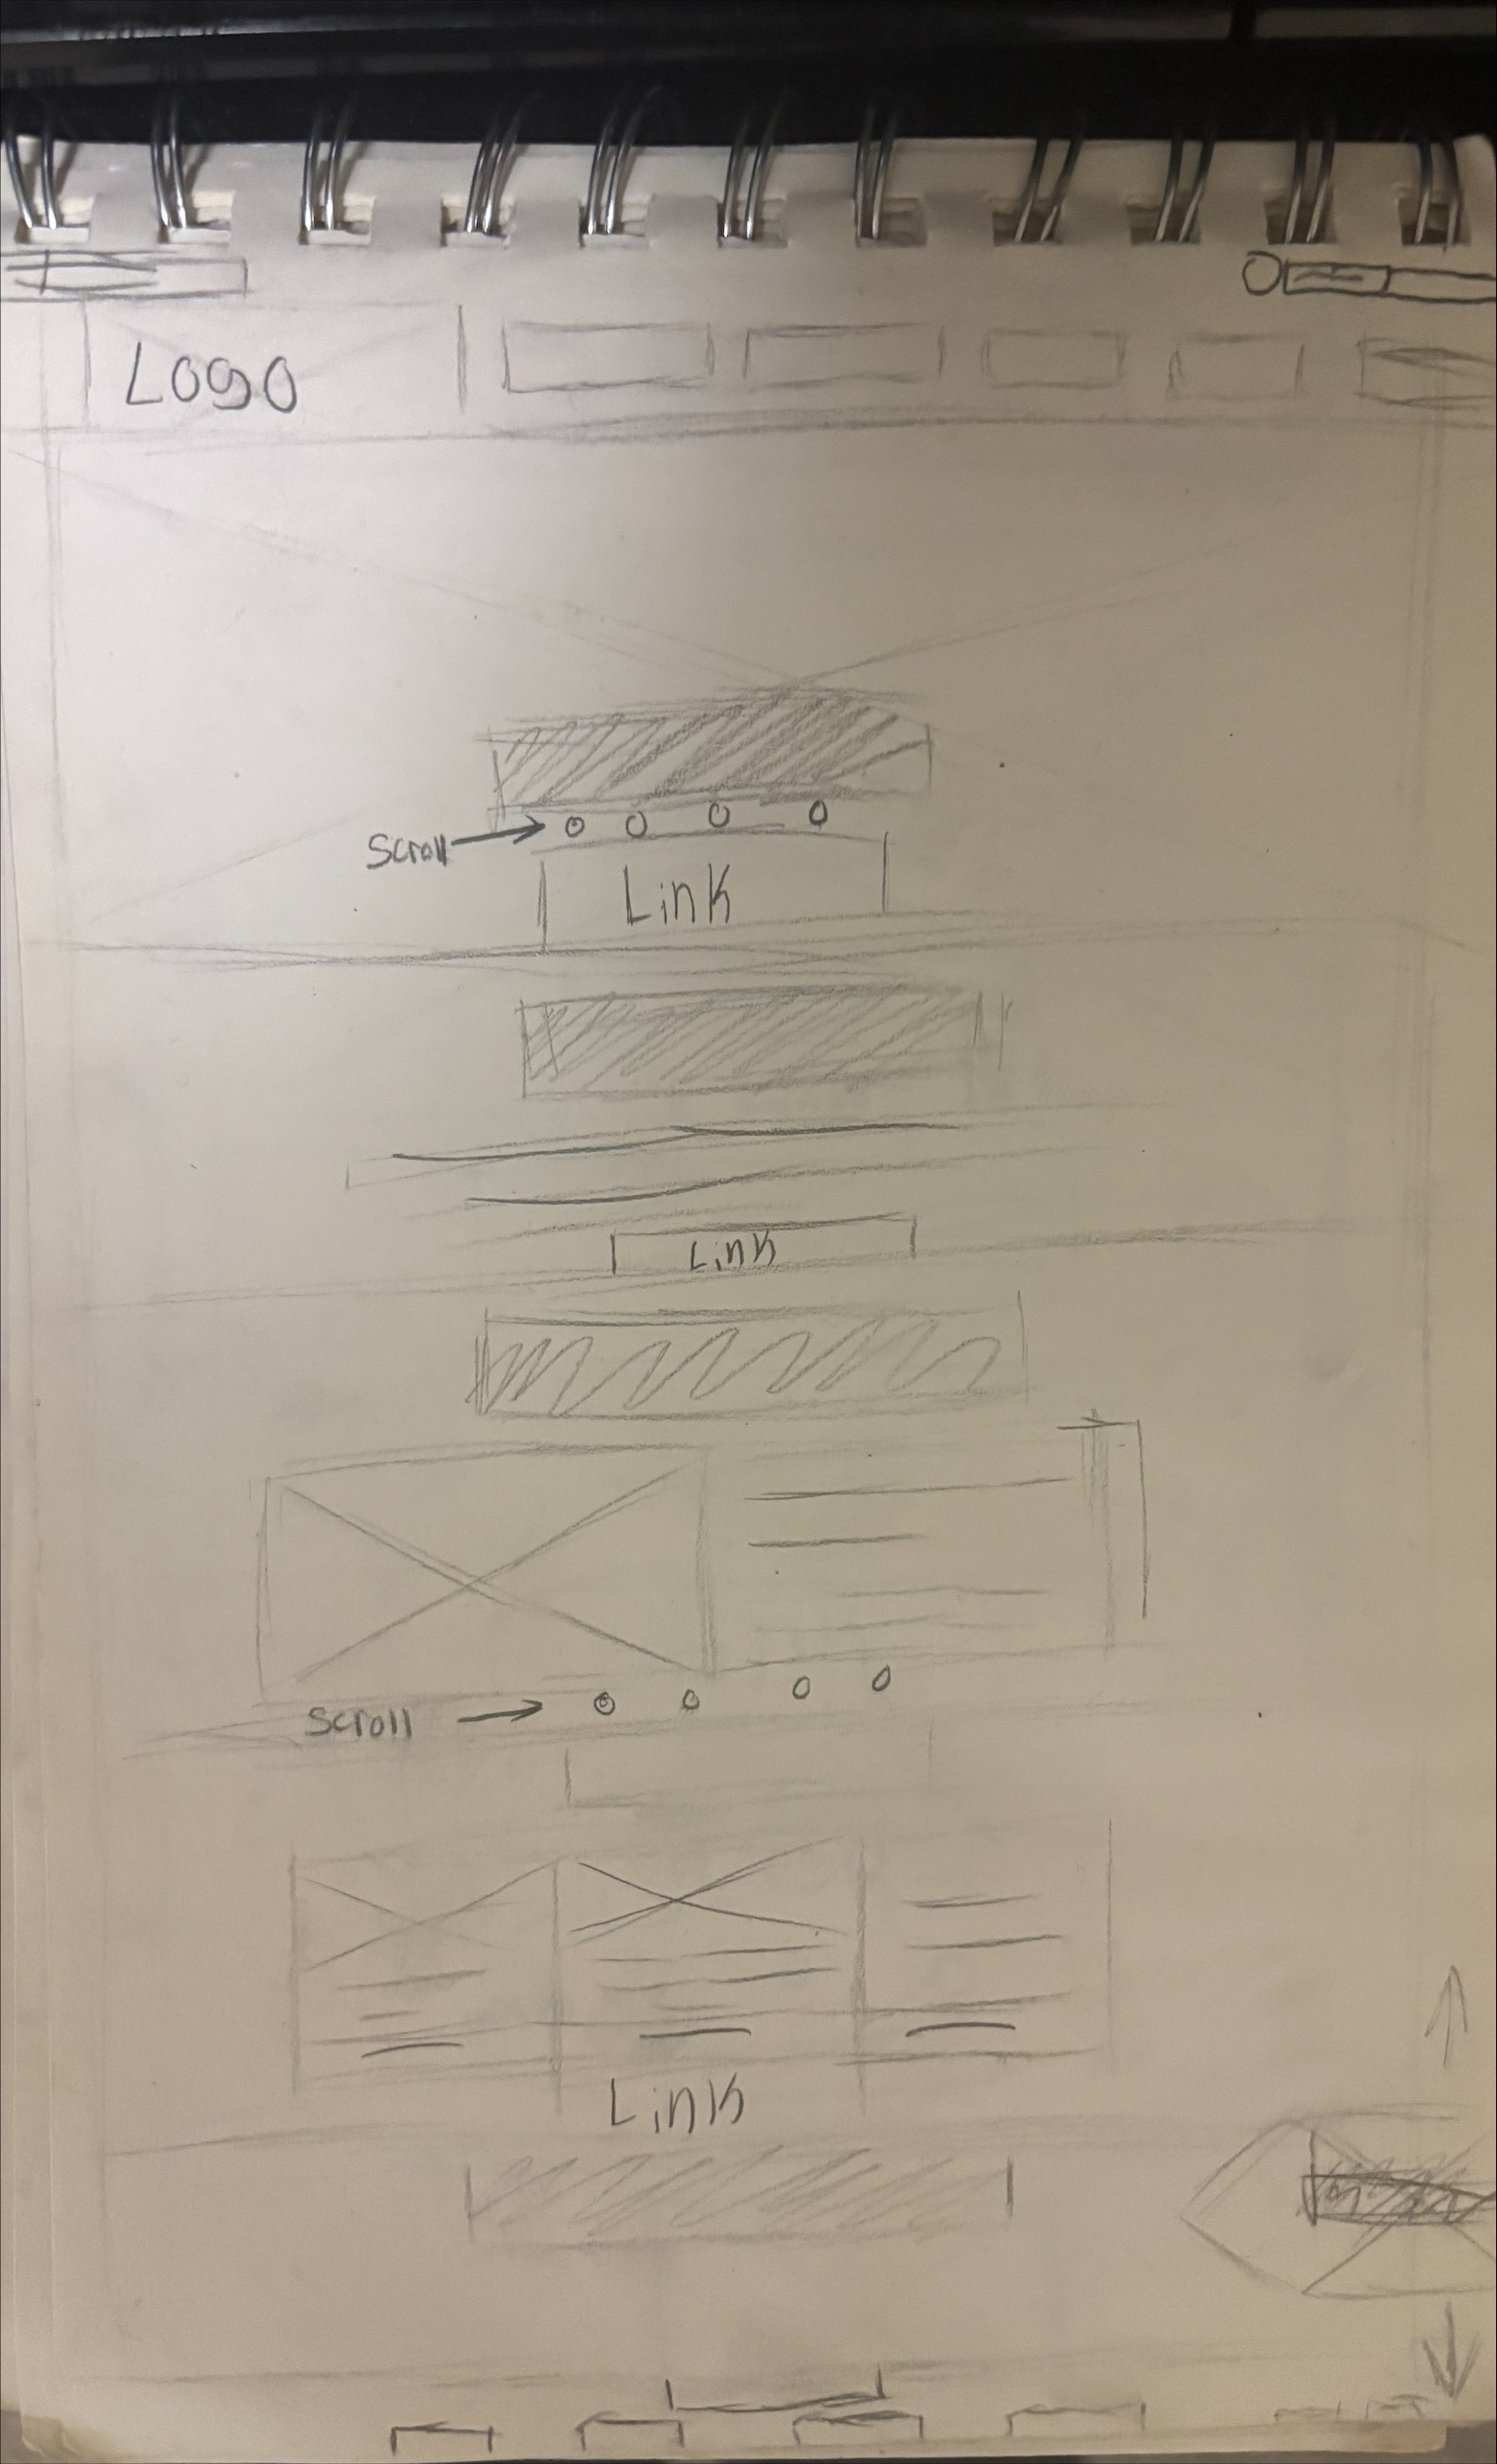 Logo
Scroll
Link
Link
Scroll
Link